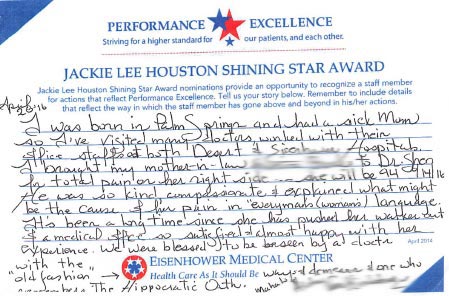 PERFORMANCE EXCELLENCE
Striving for a higher standard for our patients, and each other.
JACKIE LEE HOUSTON SHINING STAR AWARD
Jackie Lee Houston Shining Star Award nominations provide an opportunity to recognize a staff member
for actions that reflect Performance Excellence. Tell us your story below. Remember to include details
that reflect the way in which the staff member has gone above and beyond in his/her actions.
I was born in Palm Springs and had a sick Mom
so I've visited many doctors, worked with their
office staffs at both Desert & Hospitals.
I brought my mother-in-law to Dr. Shea
In total pain on her right side she will be 94
He was so kind compassionate & explained what might
be the cause of her pain in "everymans (womans) language.
It's been a long time since she has pushed her walker out
of a medical office satisfied & almost happy with her
experience. We were blessed to be seen by a doctor
April 2014
with the
"old fashion" →
EISENHOWER MEDICAL CENTER
Health Care As It Should Be
ways & demeanor & one who
remembers The Hippocratic Oath.